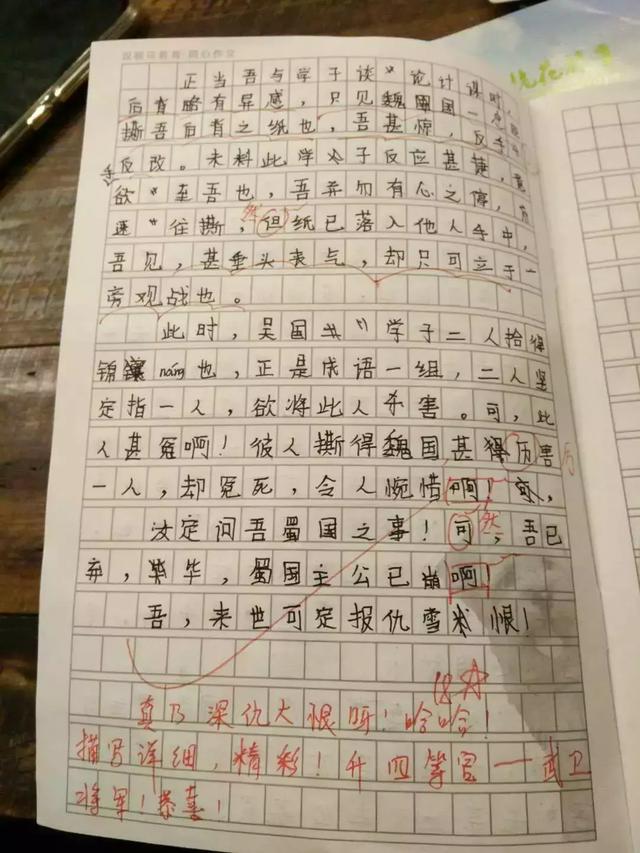 正当吾与学子谈"论计谋时,
后背略有异感,只见魏国国一
撕吾后背之纸也,吾甚惊,反手
反改。未料此学子反应甚捷,
欲"至吾也,吾并勿有心之停,
逐"往撕,但然纸已落入他人手中,
吾见,甚垂头丧气,却只可立于一
旁观战也。
此时,吴国 学子二人拾得
锦囊náng也,正是成语一组,二人坚
定指一人,欲将此人杀害。可,此
人甚冤啊!彼人撕得魏国甚得厉害
一人,却冤死,令人惋惜啊!哀,
汝定问吾蜀国之事!可然,吾已
弃,毕,蜀国主公已崩啊!
吾,来世可定报仇雪恨!
真乃深仇大恨呀!哈哈!
描写详细,精彩!升四等官——武卫
将军!恭喜!